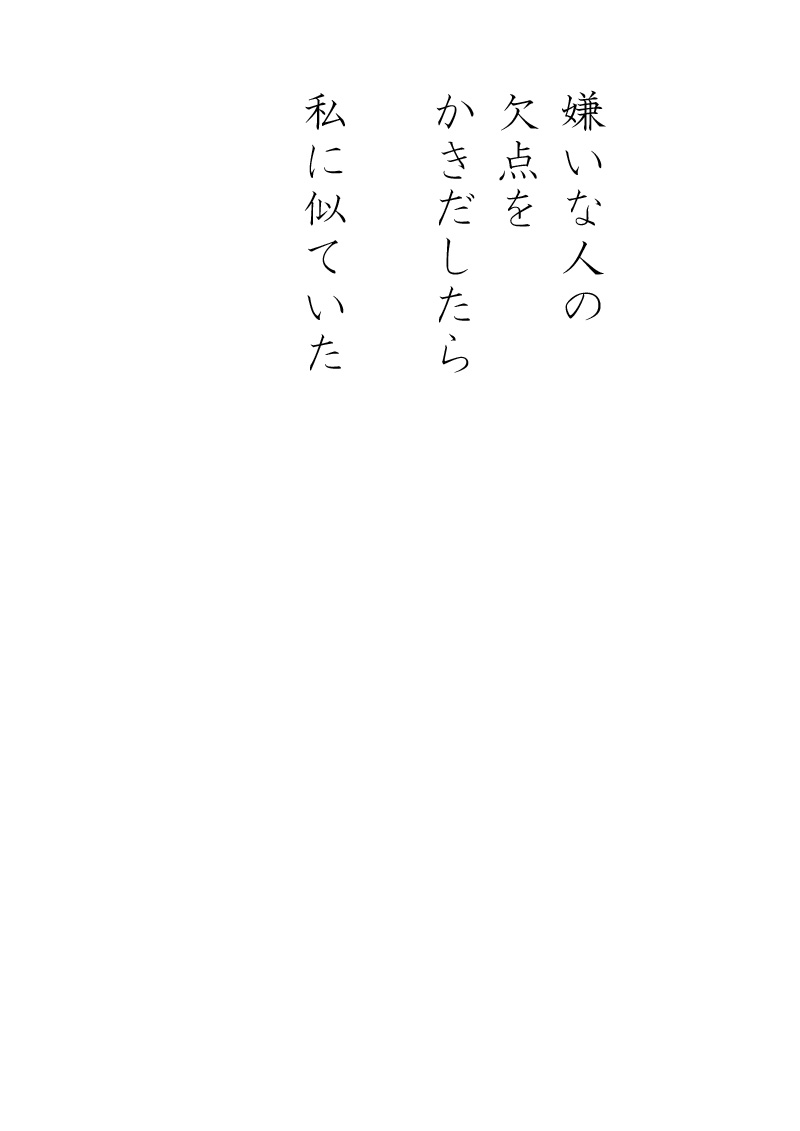 嫌いな人の
欠点を
かきだしたら
私に似ていた